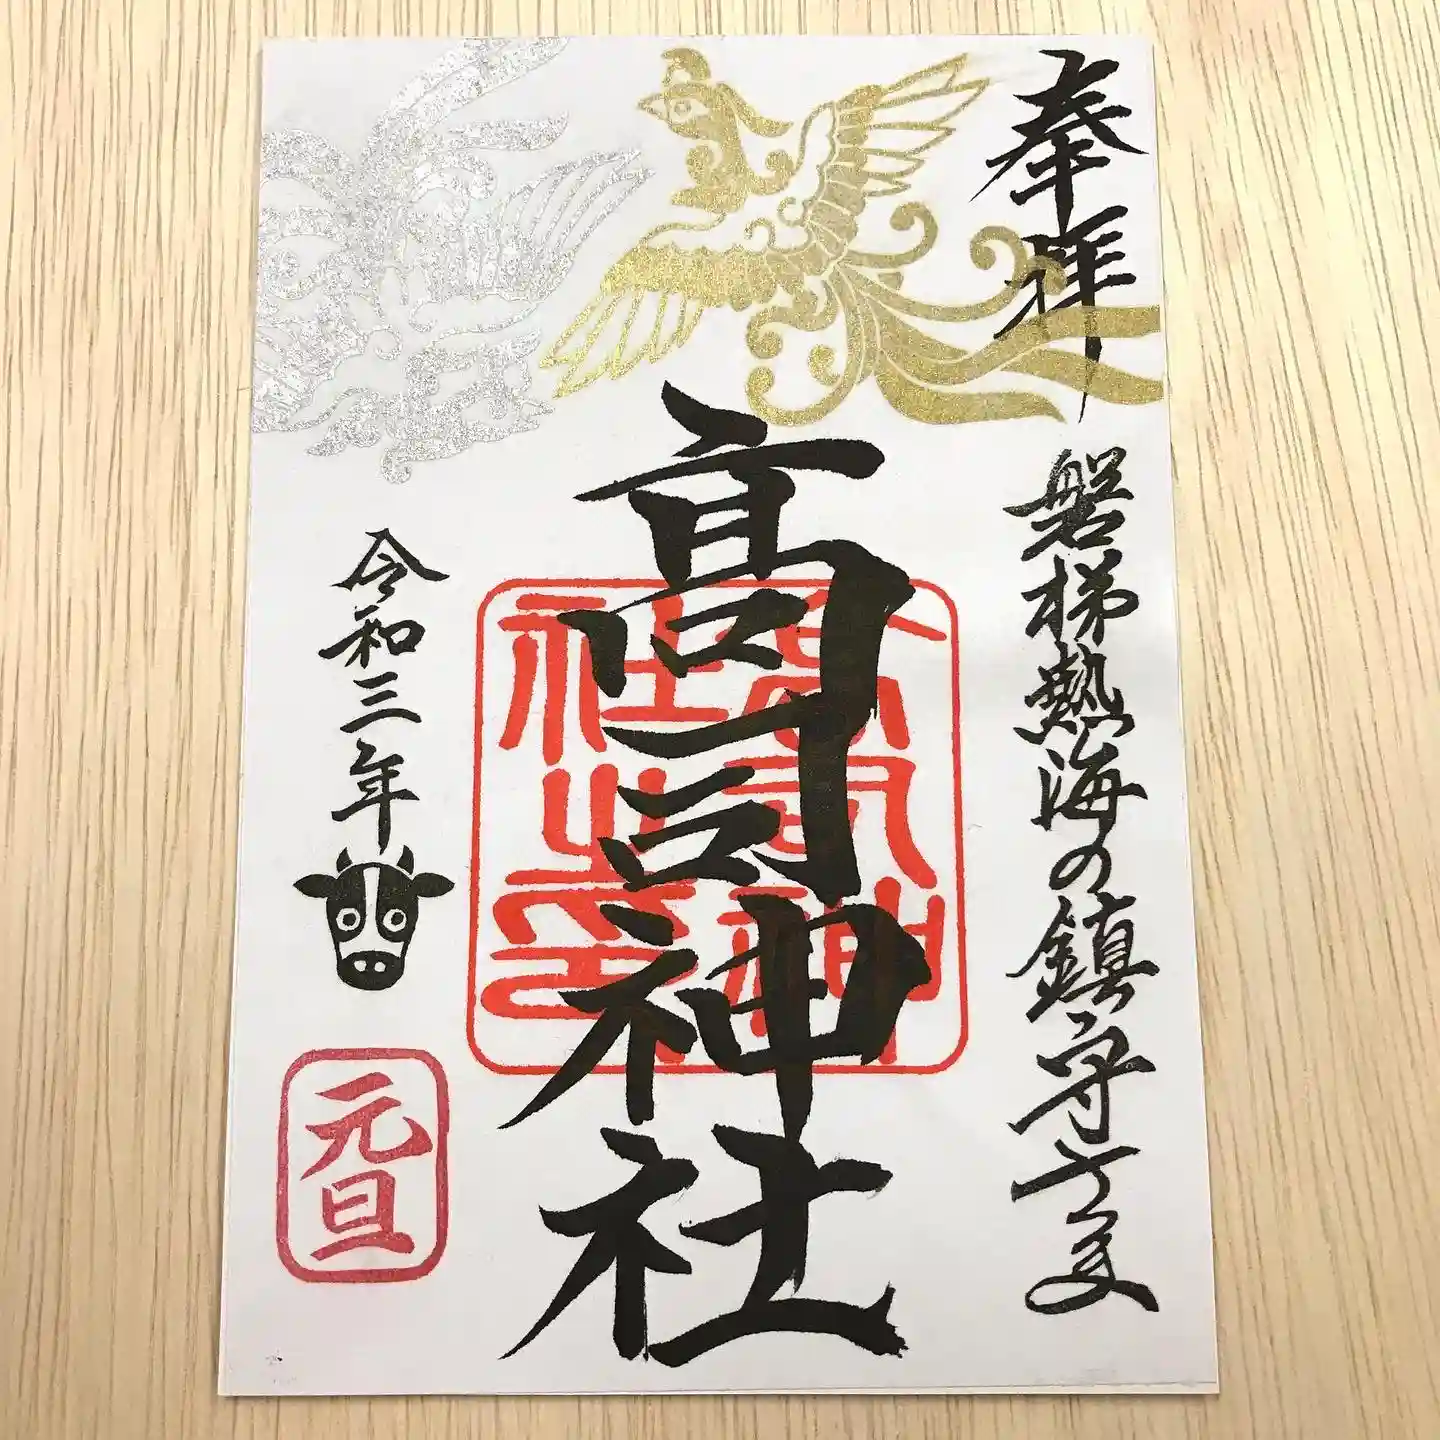 奉拝
磐梯熱海の鎮守さま
高司神社
高司神
社之印
令和三年
元旦